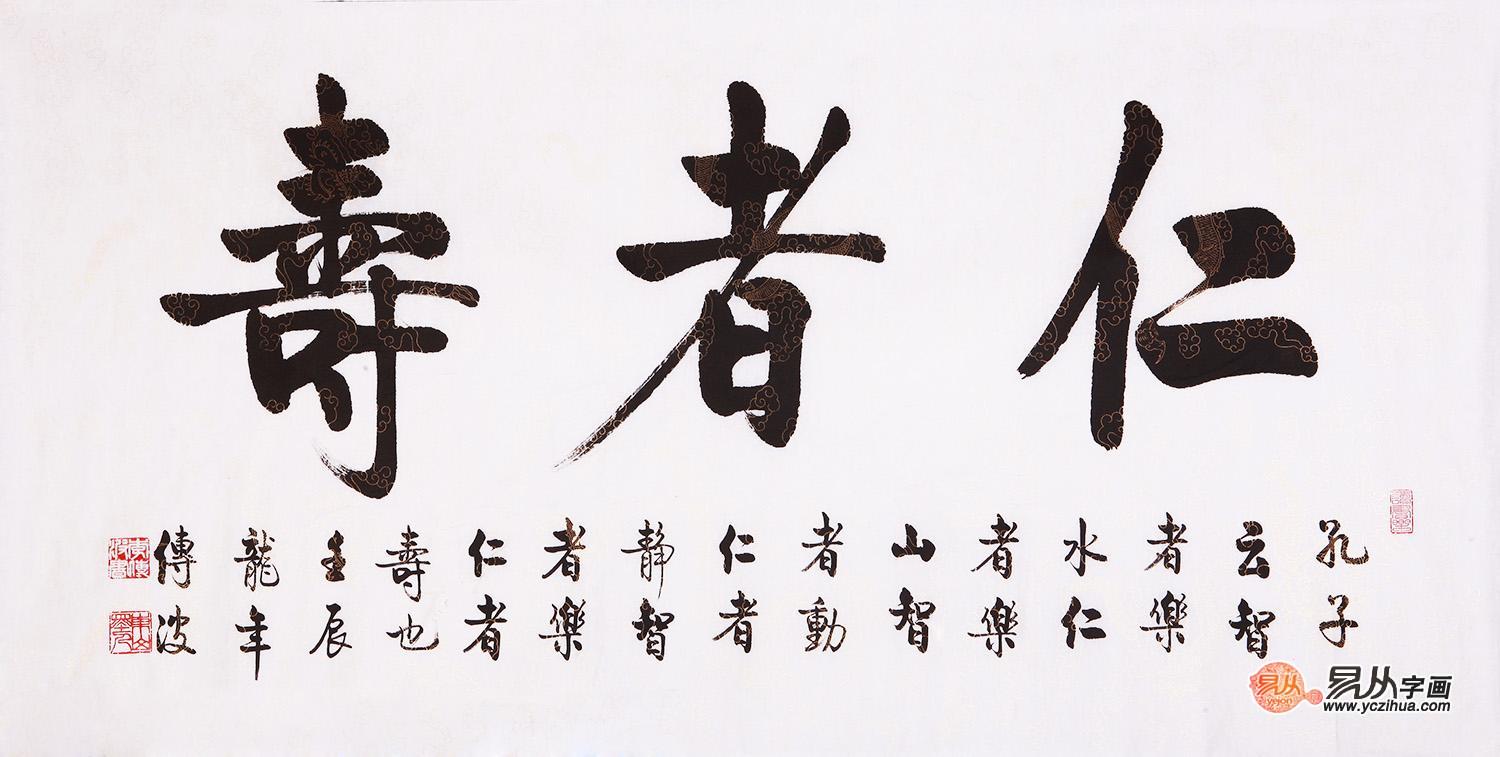 仁者壽
孔子
云智
者樂
水仁
者樂
山智
者動
仁者
静智
者樂
仁者
壽也
壬辰
龍年
傳波
易从
易从字画
www.yczihua.com